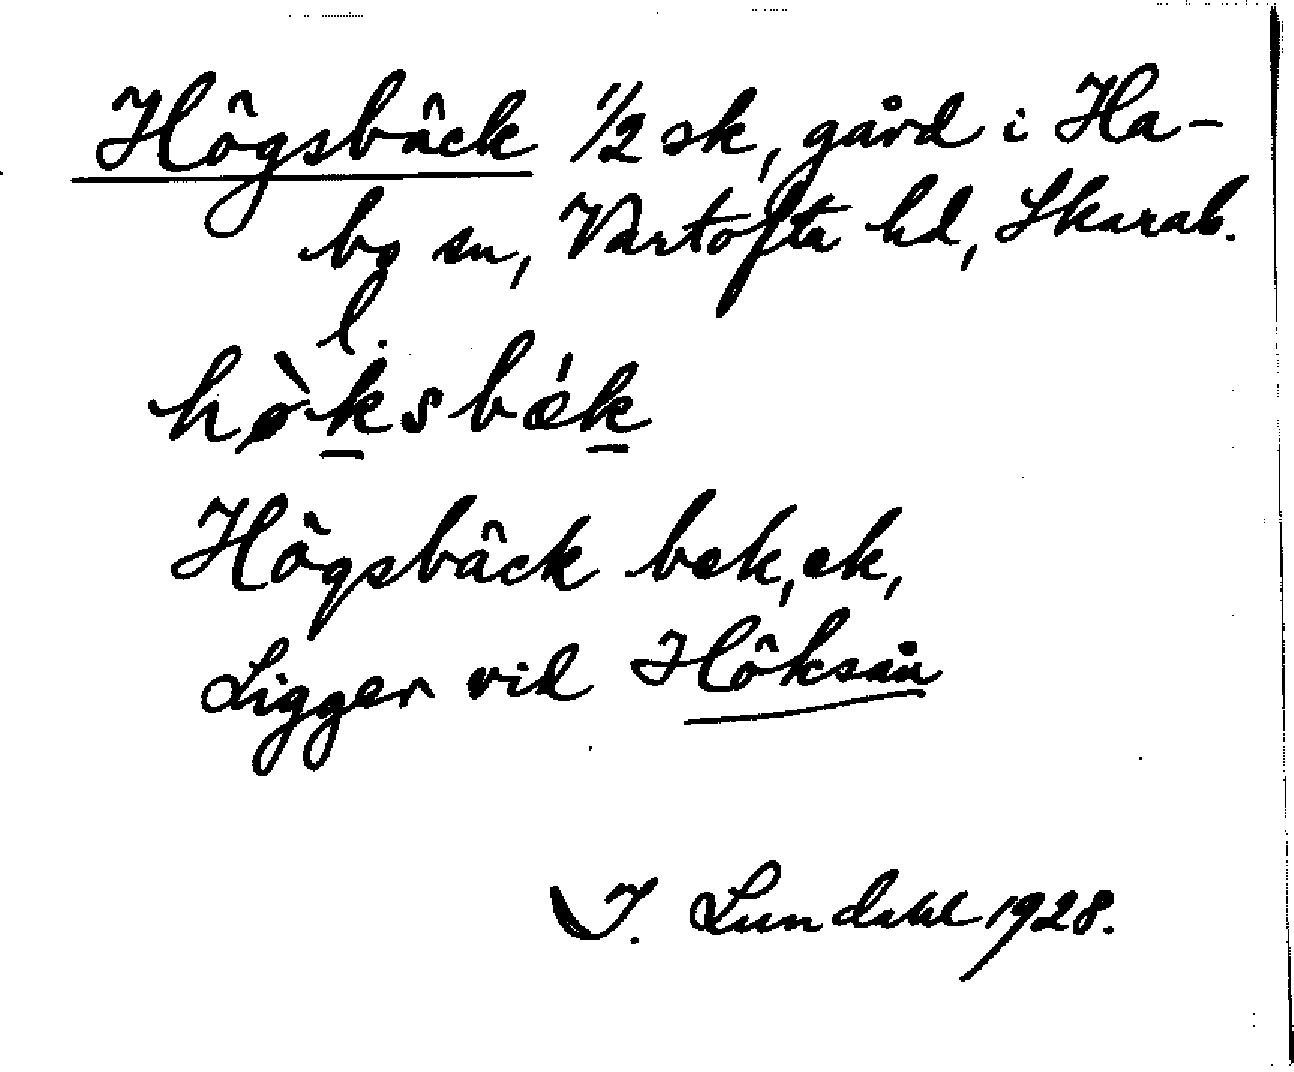 Högsbäck 1/2 sk, gård i Ha-
bo sn, Vartofta hd, Skarab.
l.
hø̀ksbǽk
Högsbäck bek, ek,
Ligger vid Höksån
I. Lundahl 1928.